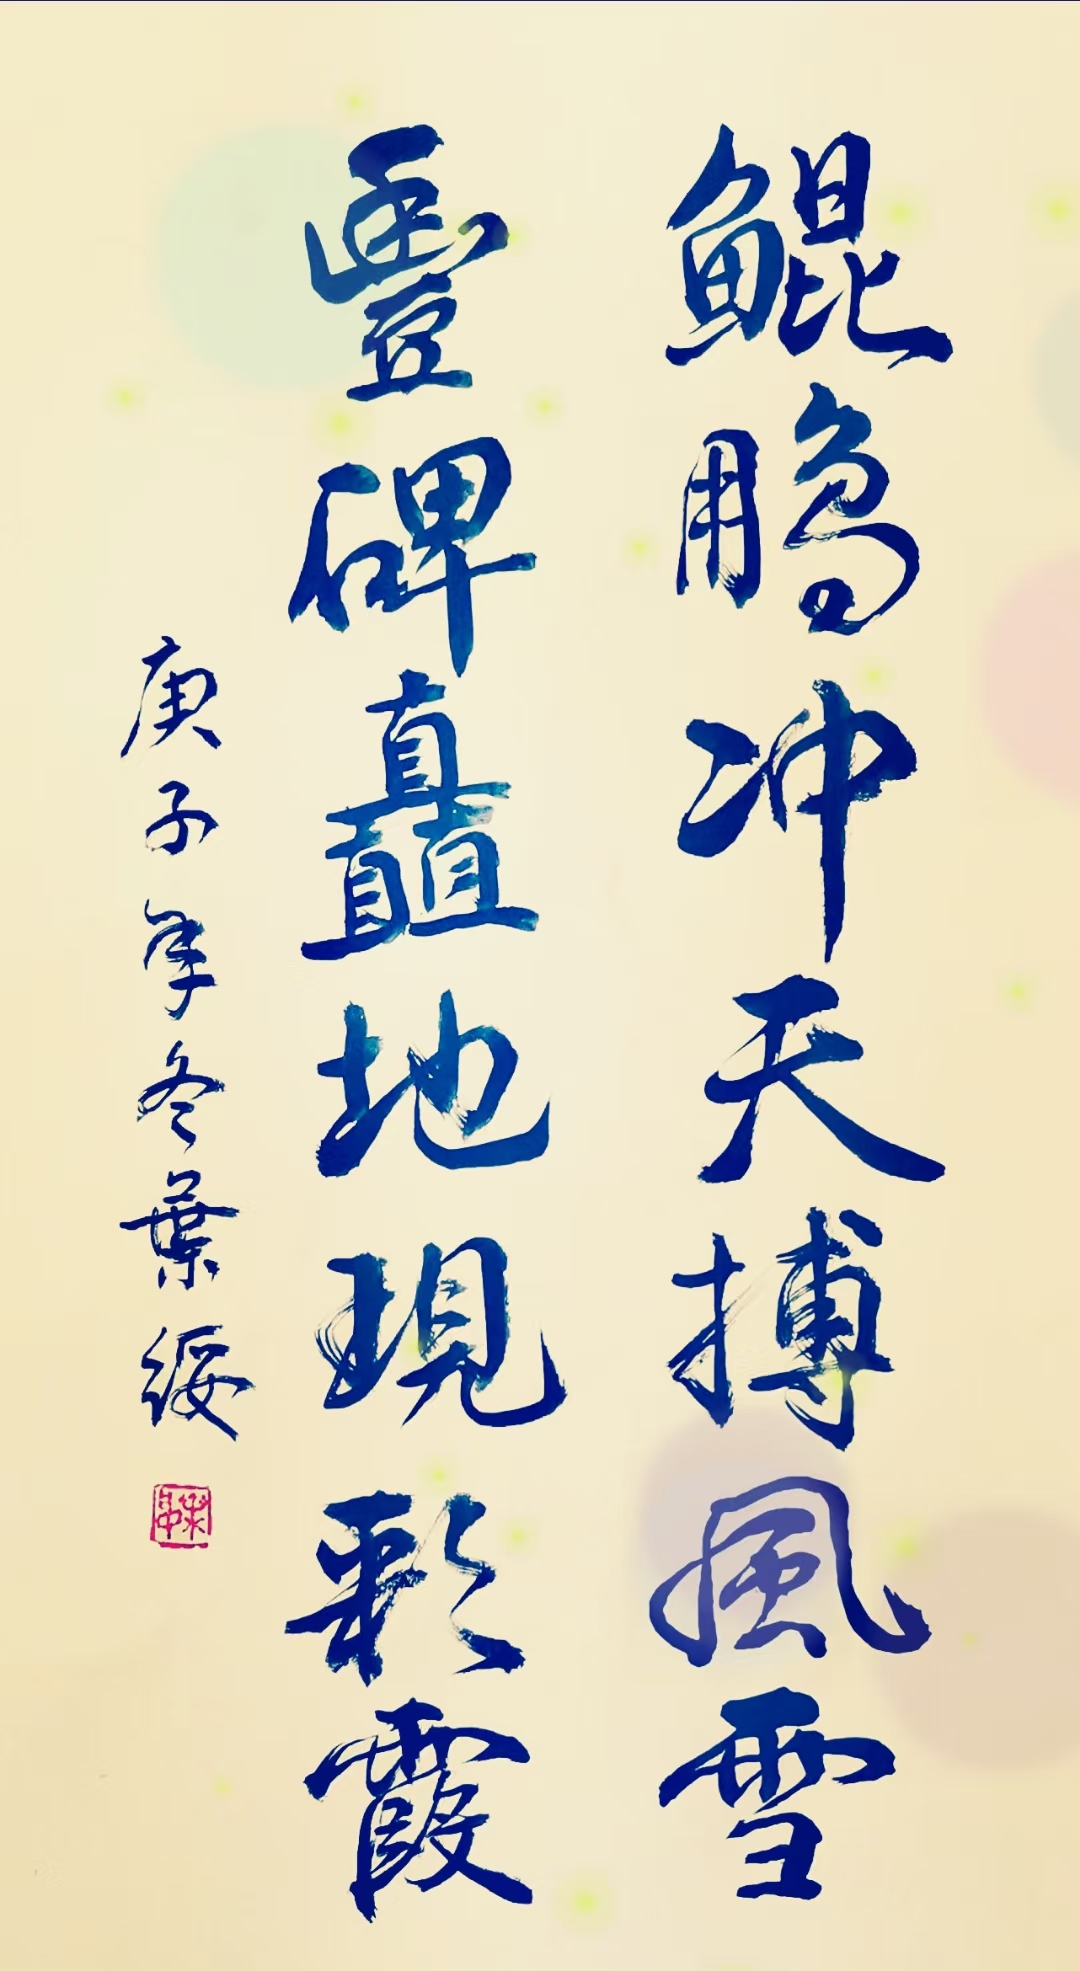 鯤鹏冲天搏風雪
豐碑矗地現彩霞
庚子年冬葉綏